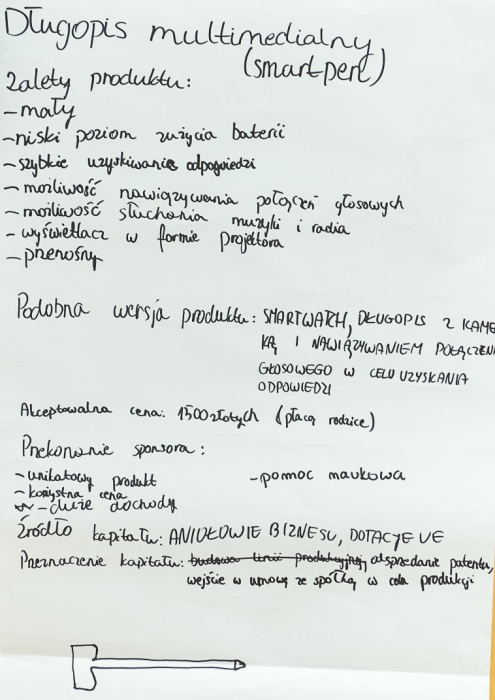 Długopis multimedialny
(smart-pen)
Zalety produktu:
- mały
- niski poziom zużycia baterii
- szybkie uzyskiwanie odpowiedzi
- możliwość nawiązywania połączeń głosowych
- możliwość słuchania muzyki i radia
- wyświetlacz w formie projektora
- przenośny
Podobna wersja produktu: SMARTWATCH, DŁUGOPIS Z KAME
RĄ I NAWIĄZYWANIEM POŁĄCZENI
GŁOSOWEGO W CELU UZYSKANIA
ODPOWIEDZI
Akceptowalna cena: 1500 złotych (płacą rodzice)
Przekonanie sponsora:
- unikatowy produkt - pomoc naukowa
- korzystna cena
- duże dochody
Źródło kapitału: ANIOŁOWIE BIZNESU, DOTACJE UE
Przeznaczenie kapitału: budowa linii produkcyjnej, odsprzedanie patentu,
wejście w umowę ze spółką w celu produkcji